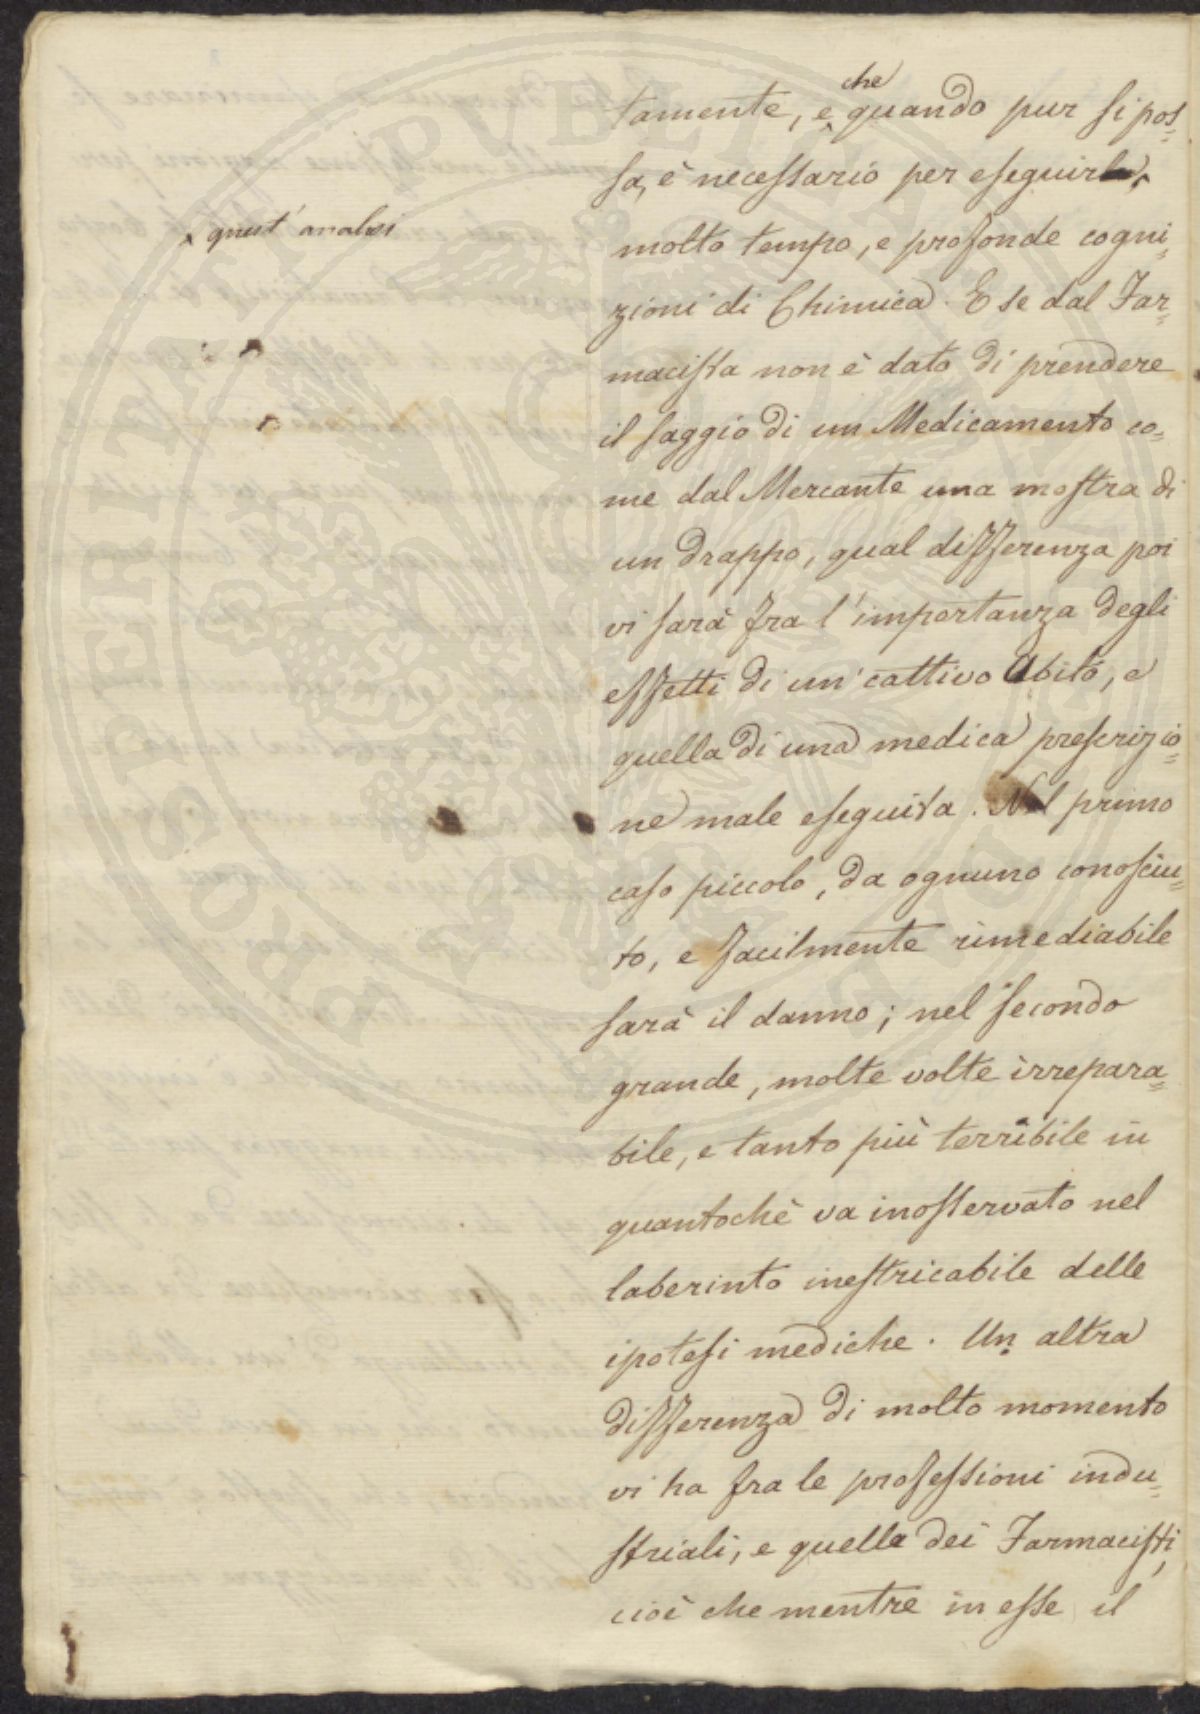 che
tamente, e quando pur si pos=
sa, è necessario per eseguirla,
quest'analisi
molto tempo, e profonde cogni=
zioni di Chimica. E se dal Far=
macista non è dato di prendere
il saggio di un Medicamento co=
me dal Mercante una mostra di
un drappo, qual differenza poi
vi sarà fra l'importanza degli
effetti di un cattivo Abito, e
quella di una medica prescrizio=
ne male eseguita. Nel primo
caso piccolo, da ognuno conosciu=
to, e facilmente rimediabile
sarà il danno; nel secondo
grande, molte volte irrepara=
bile, e tanto più terribile in
quantochè va inosservato nel
laberinto inestricabile delle
ipotesi mediche. Un altra
differenza di molto momento
vi ha fra le professioni indu=
striali, e quella dei Farmacisti,
cioè che mentre in esse il